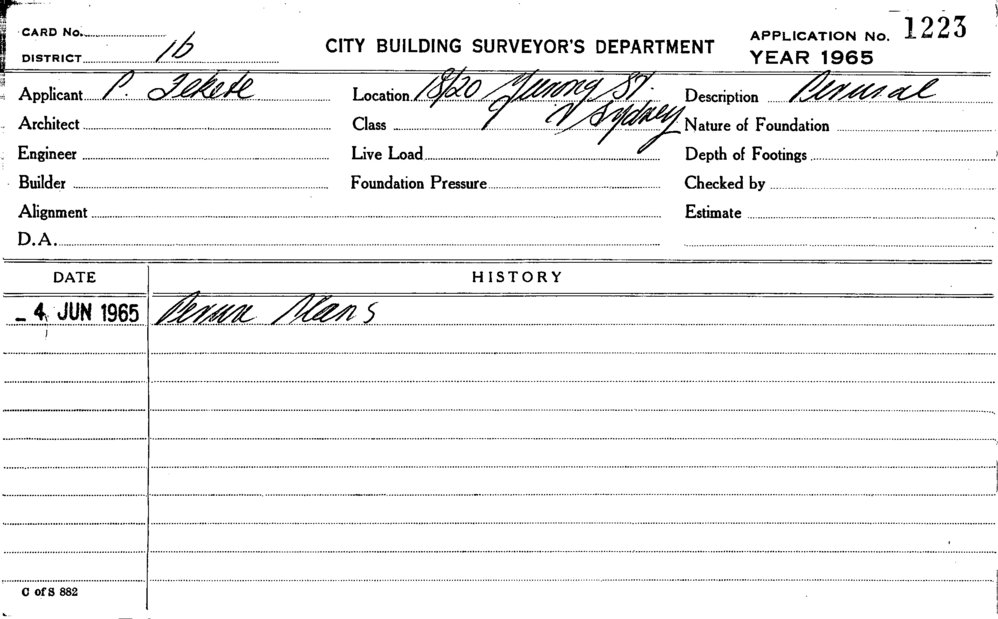 CARD No.
DISTRICT 1b
CITY BUILDING SURVEYOR'S DEPARTMENT
APPLICATION No. 1223
YEAR 1965
Applicant P. Fekete Location 18/20 Yurong St. Description Perusal
Architect Class Sydney Nature of Foundation
Engineer Live Load Depth of Footings
Builder Foundation Pressure Checked by
Alignment Estimate
D.A.
DATE HISTORY
- 4 JUN 1965 Peruse Plans
C of S 882